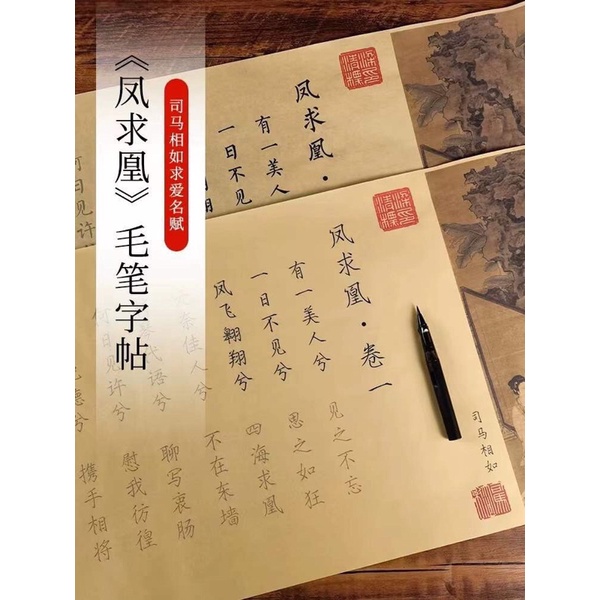 《凤求凰》毛笔字帖
司马相如求爱名赋
凤求凰·
有一美人
一日不见
何日见许
凤求凰·卷一
有一美人兮
见之不忘
一日不见兮
思之如狂
凤飞翱翔兮
四海求凰
无奈佳人兮
不在东墙
代语兮
聊写衷肠
何日见许兮
慰我彷徨
德兮
携手相将
司马相如